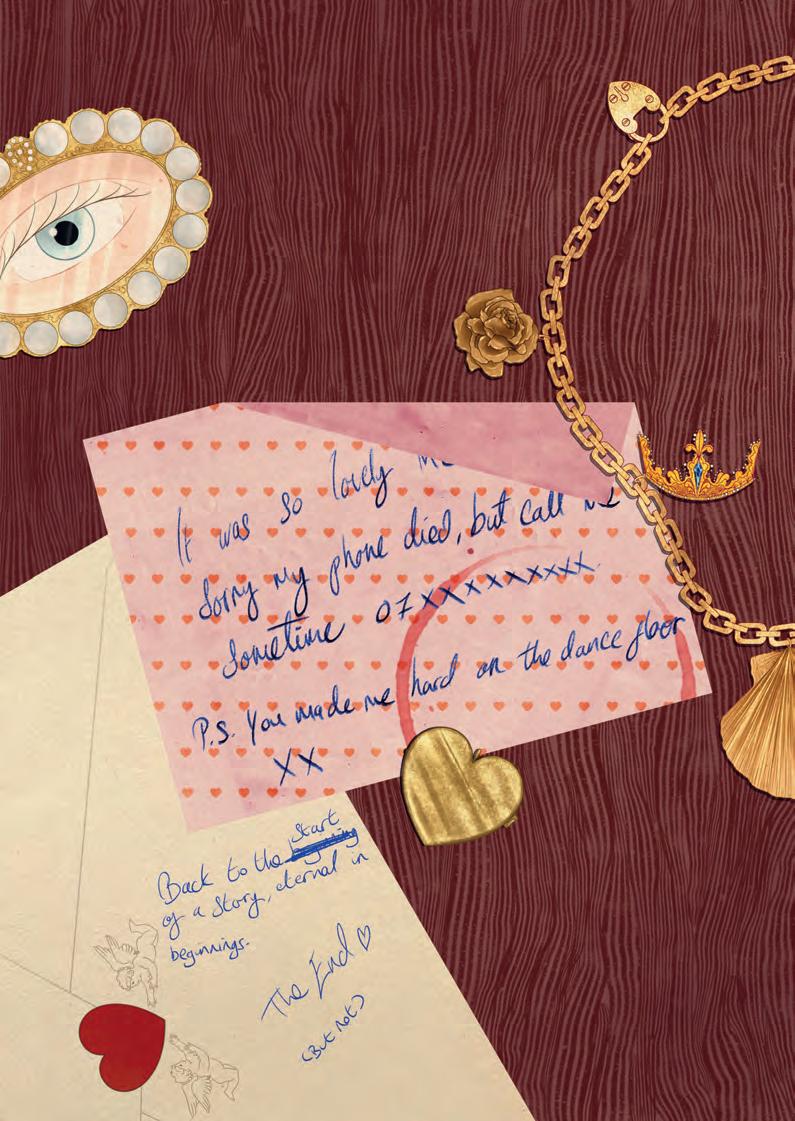 It was so lovely
Sorry my phone died, but call
Sometime 07xxxxxxxxx
P.S. You made me hard on the dance floor
XX
Back to the Start
of a Story, eternal in
beginnings.
The End ♡
(But not)